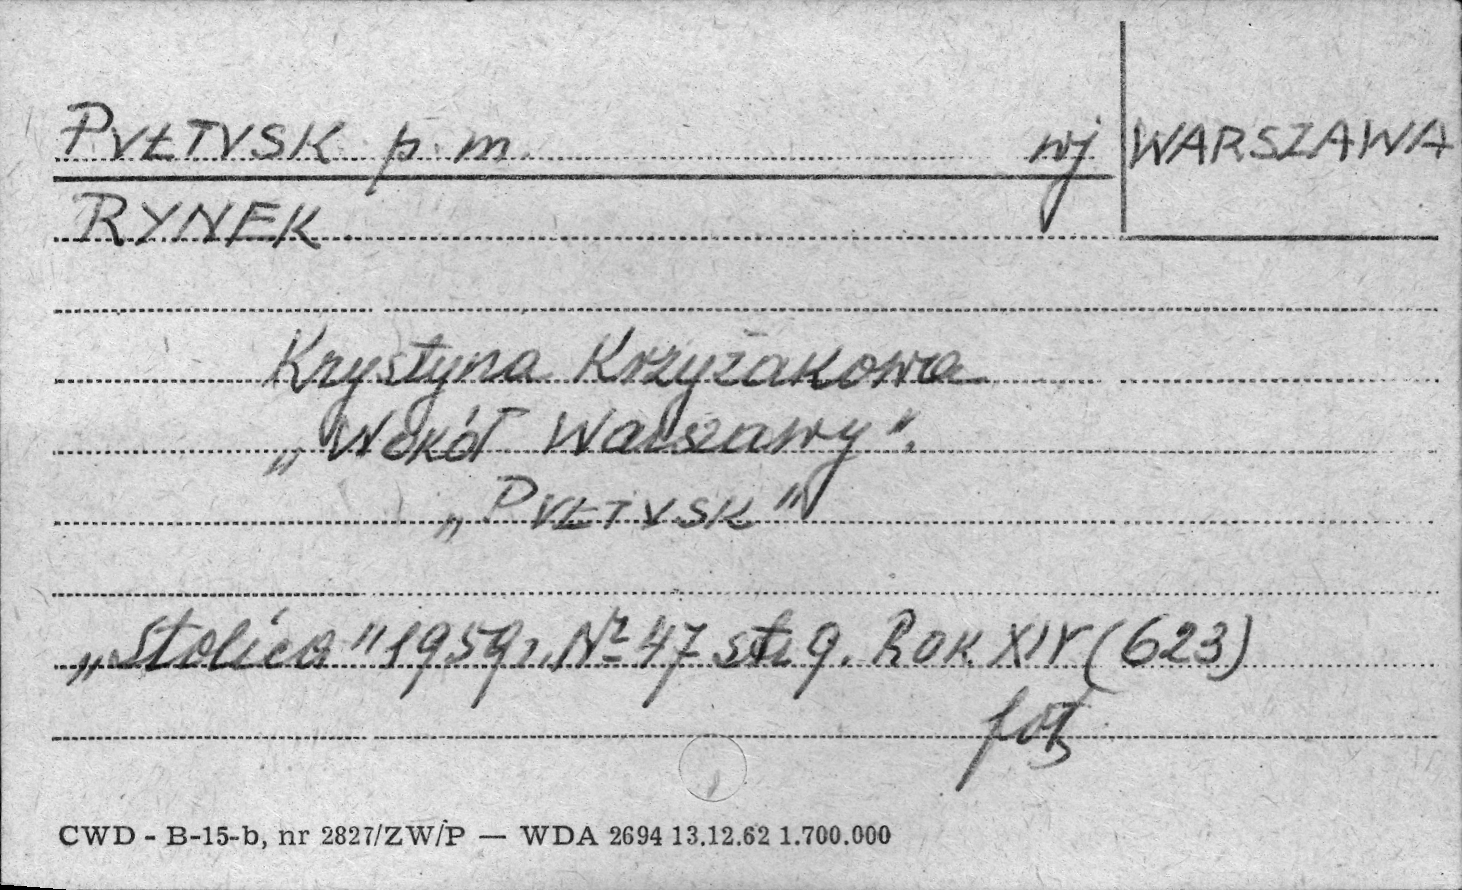 PUŁTUSK p. m. wj WARSZAWA
RYNEK
Krystyna Krzyżakowa
„Wokół Warszawy".
„PUŁTUSK"
„Stolica" 1959r. Nr 47 str. 9. Rok XIV (623)
fot
CWD - B-15-b, nr 2827/ZW/P — WDA 2694 13.12.62 1.700.000